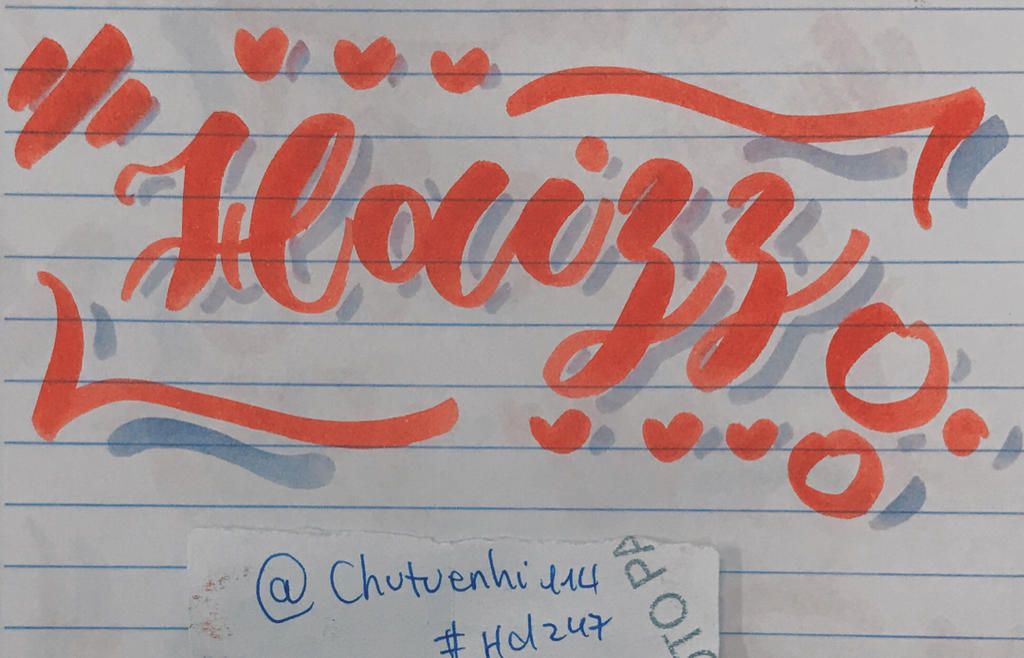 Haizz
@Chutuenhi114
#Hd247
OTO PA